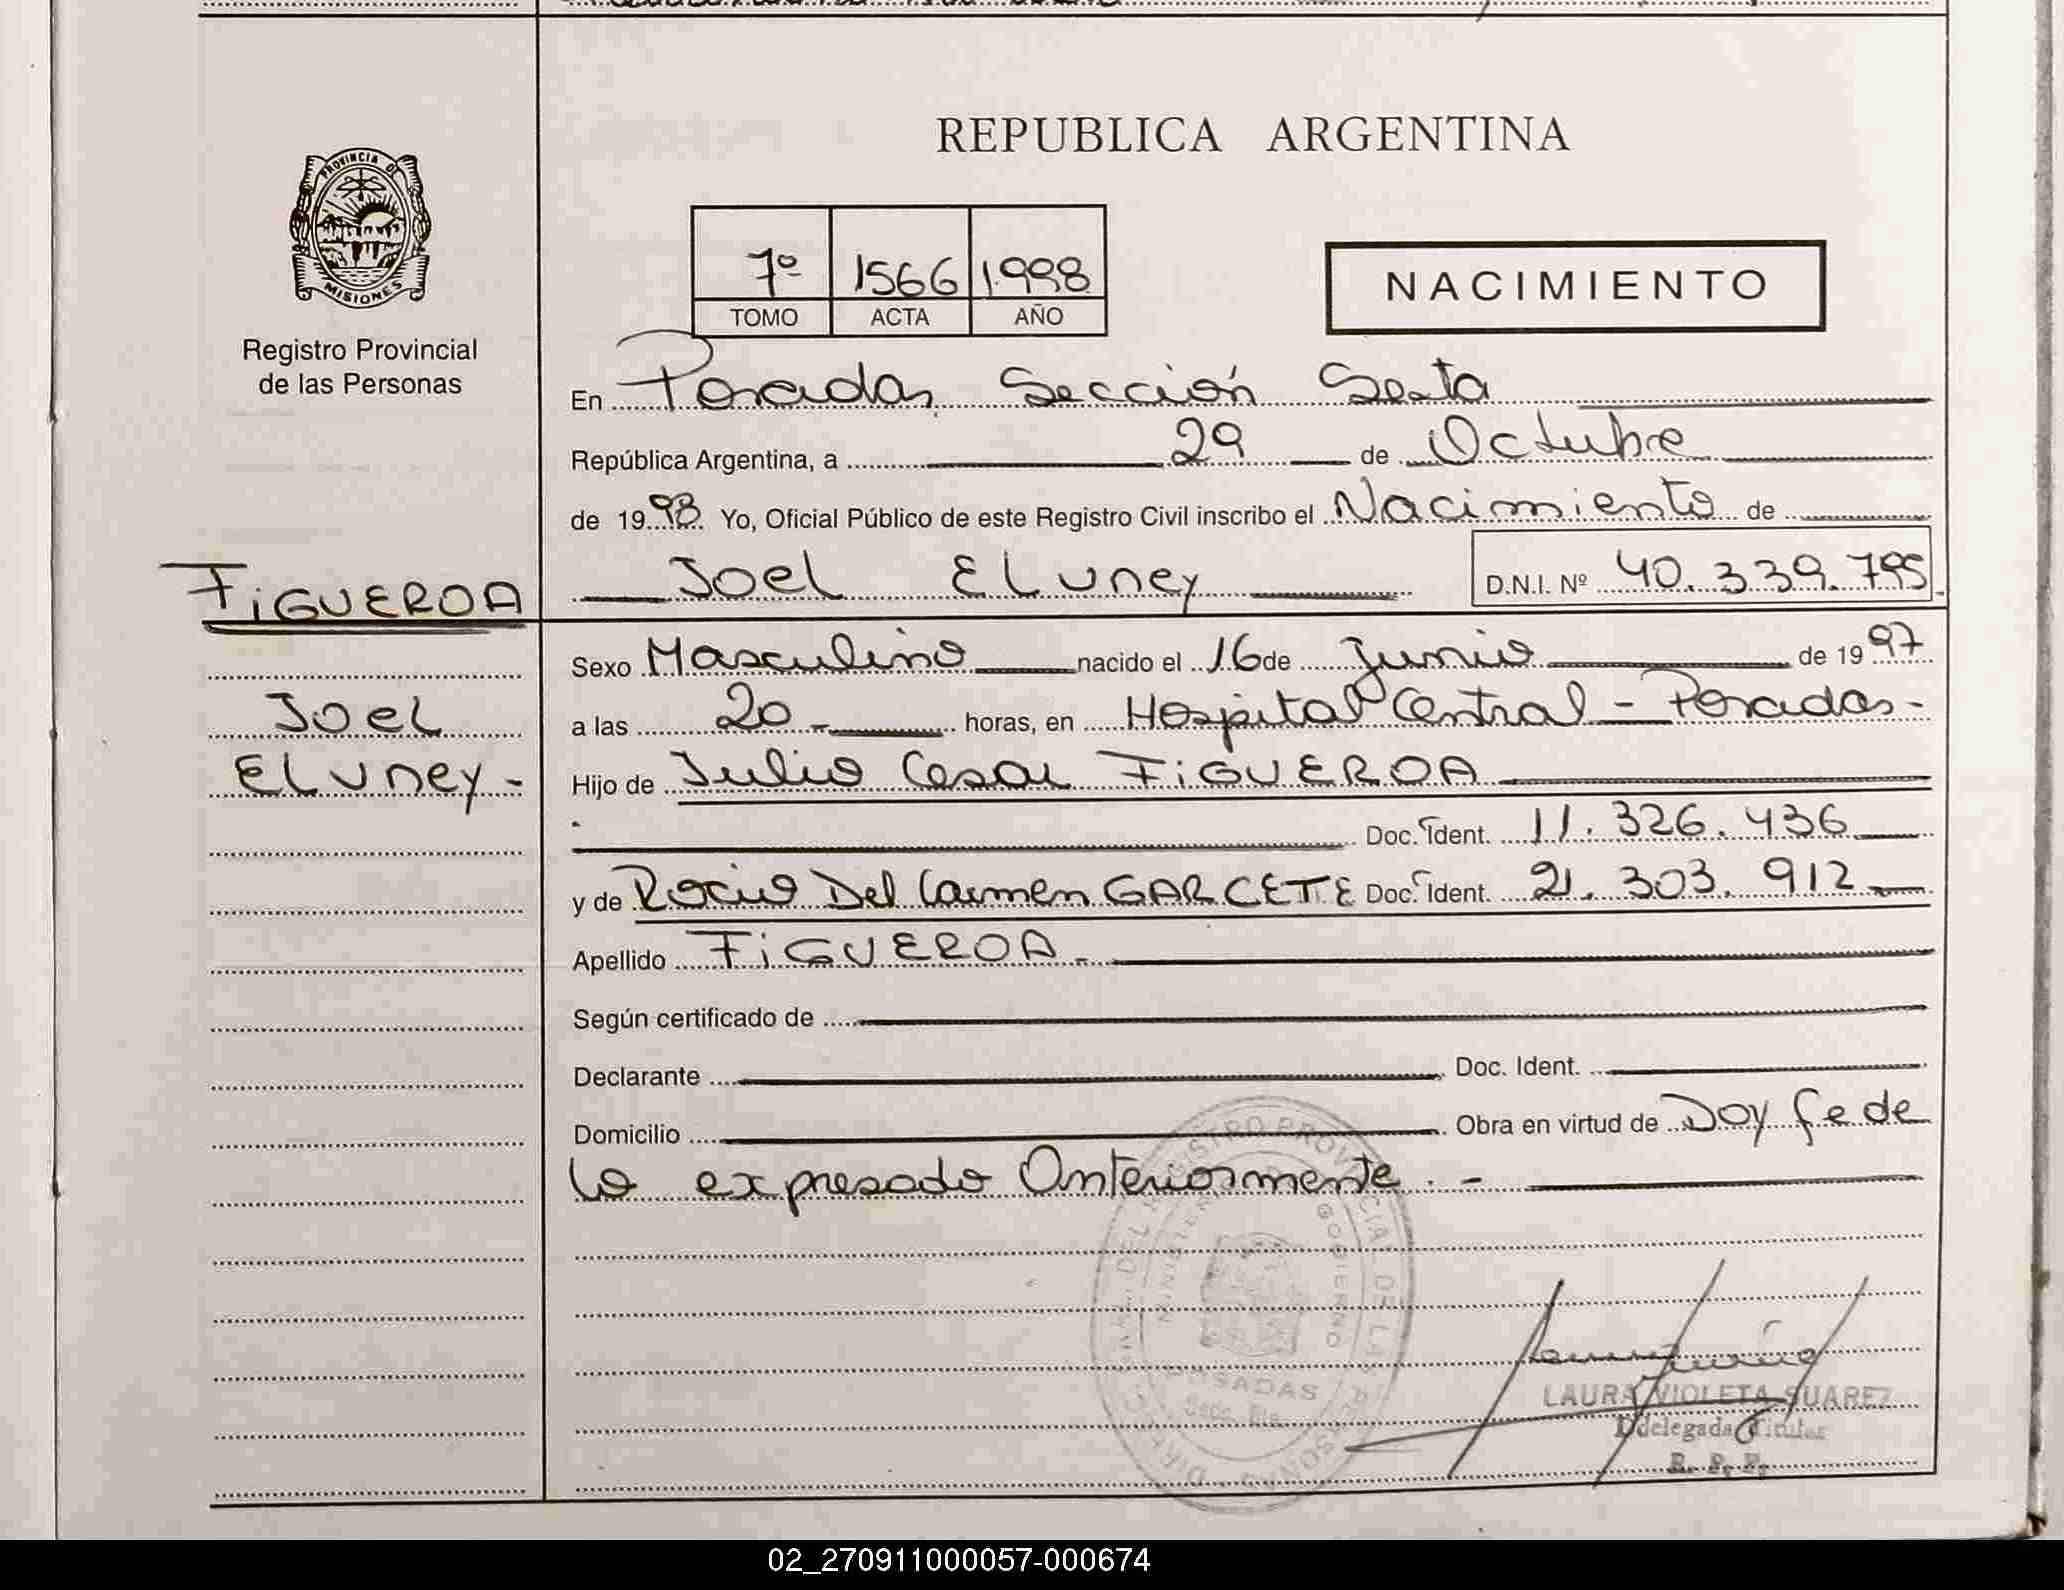 REPUBLICA ARGENTINA
PROVINCIA DE
MISIONES
Registro Provincial
de las Personas
7º 1566 1998
TOMO ACTA AÑO
NACIMIENTO
En Posadas Sección Sexta
República Argentina, a 29 de Octubre
de 1998 Yo, Oficial Público de este Registro Civil inscribo el Nacimiento de
FIGUEROA
Joel Eluney
Joel Eluney D.N.I. Nº 40.339.795
Sexo Masculino nacido el 16 de Junio de 1997
a las 20 - horas, en Hospital Central - Posadas -
Hijo de Julio Cesar FIGUEROA
Doc. Ident. 11.326.436
y de Rocio Del Carmen GARCETE Doc. Ident. 21.303.912
Apellido FIGUEROA -
Según certificado de
Declarante Doc. Ident.
Domicilio Obra en virtud de Doy fe de
lo expresado Anteriormente . -
POSADAS
LAURA VIOLETA SUAREZ
Delegada Titular
R. P. P.
02_270911000057-000674